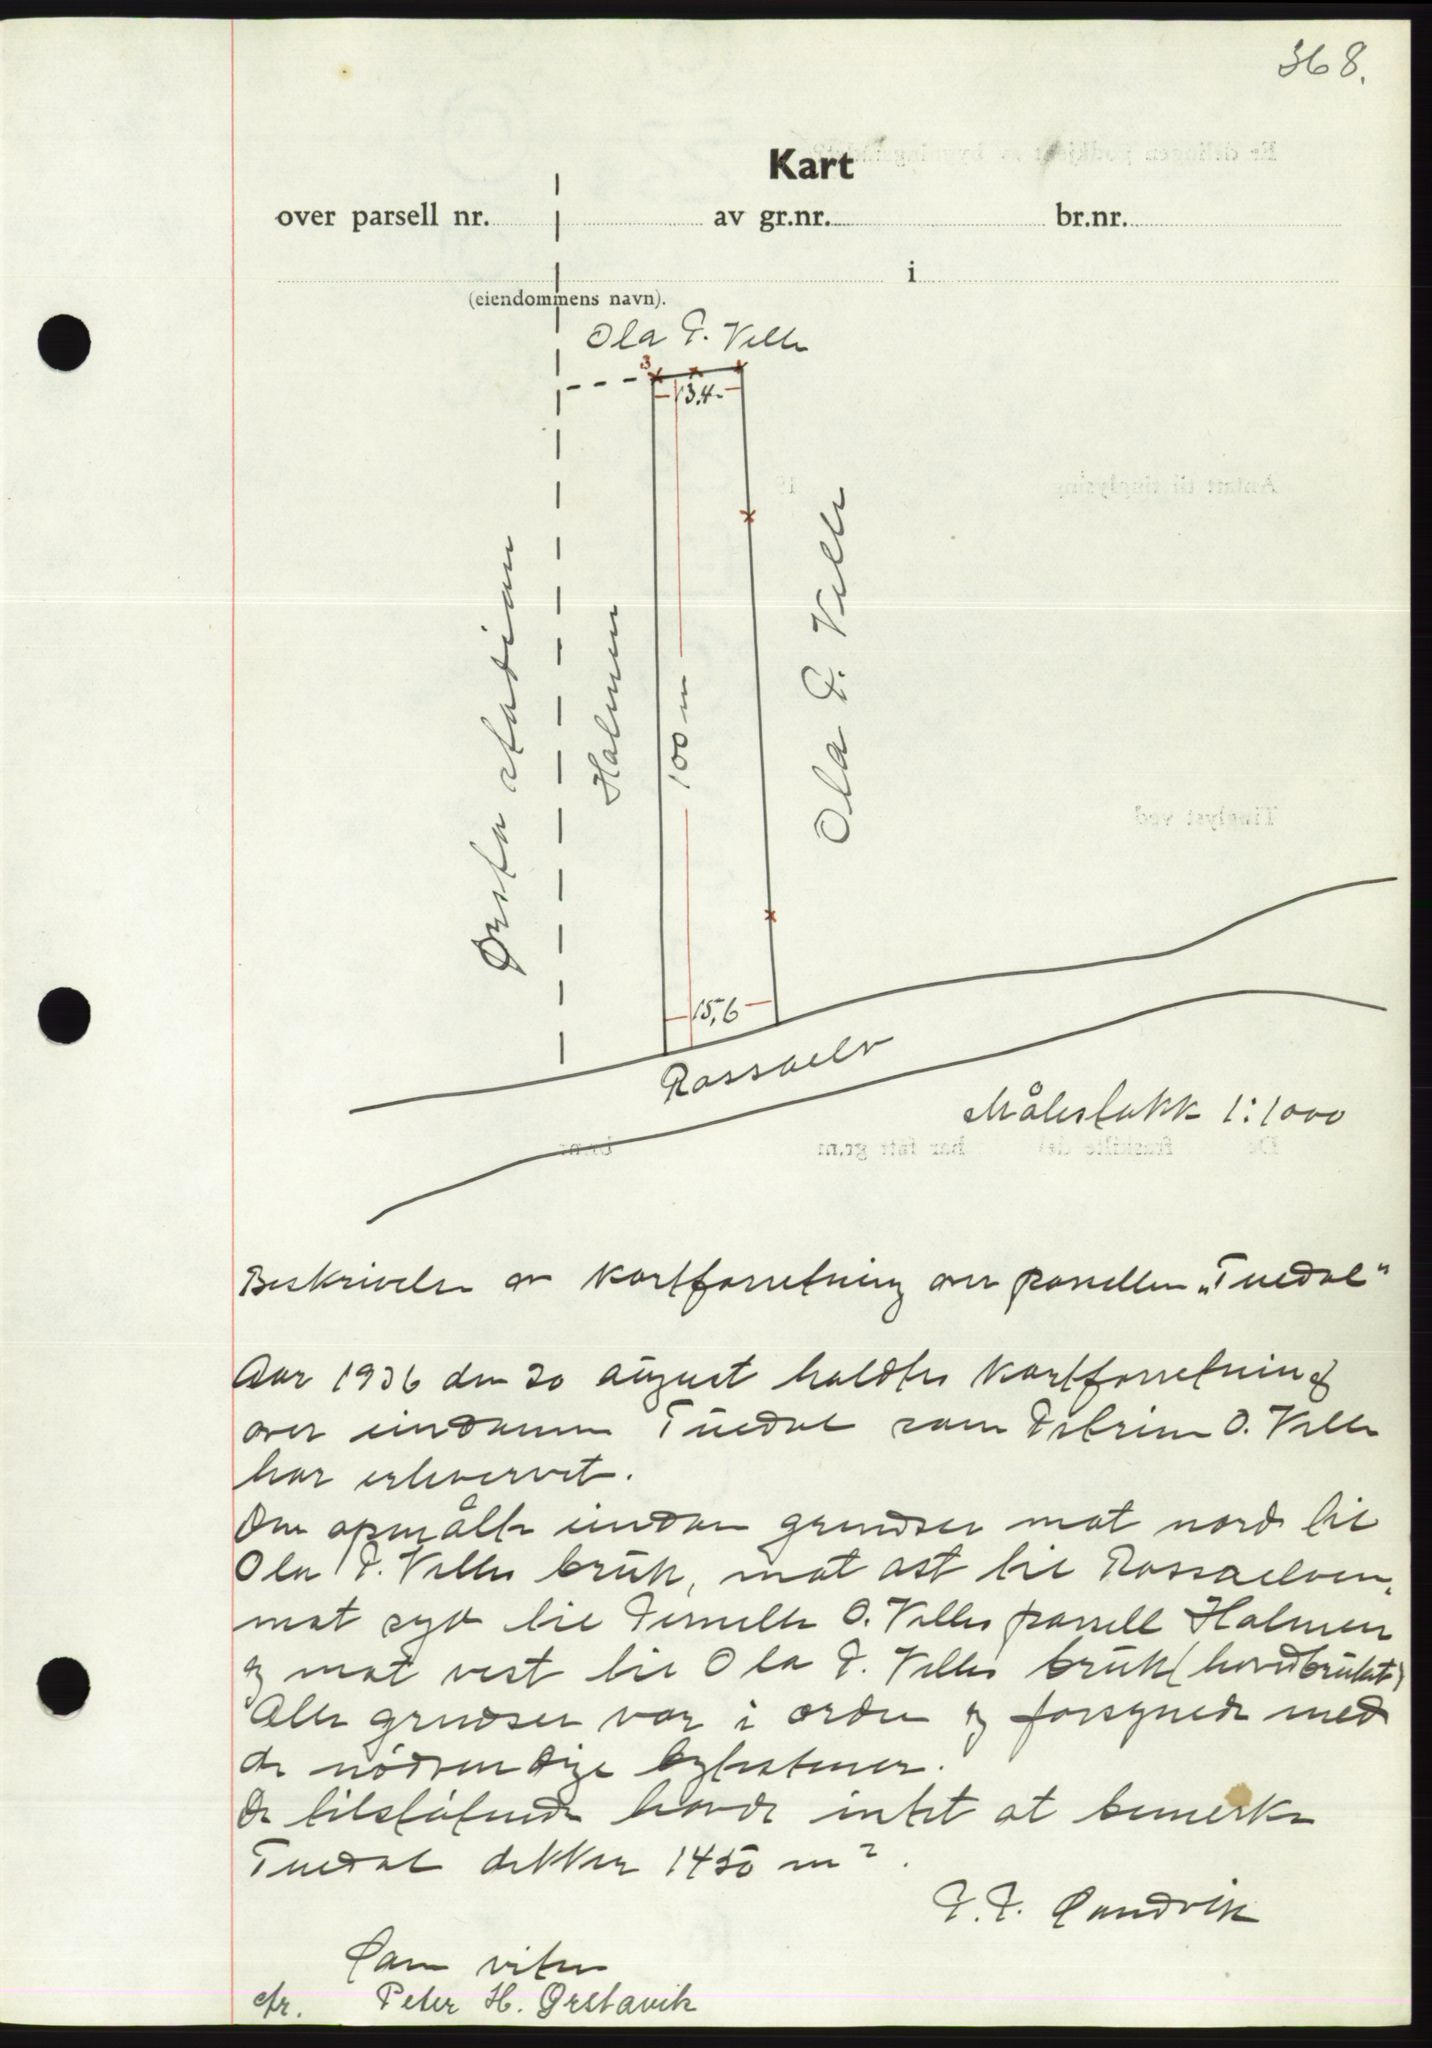 368.
Kart
over parsell nr. av gr.nr. br.nr.
i
(eiendommens navn).
Ola P. Velle
3
13,4
Ørsta stadion
Holmen
100 m
Ola P. Velle
15,6
Rossaelv
Målestokk 1:1000
Beskrivelse av kartforretning over parsellen „Tuedal"
Aar 1936 den 20 august holdtes kartforretning
over eiendommen Tuedal som O. Velle
har erhvervet.
Den opmålte eiendom grendser mot nord til
Ola P. Velles bruk, mot øst til Rossaelven,
mot syd til O. Velles parsell Holmen
og mot vest til Ola P. Velles bruk (hovedbruket)
Alle grendser var i orden og forsynede med
de nødvendige bytestener.
De tilstøtende havde intet at bemerke
Tuedal dekker 1450 m².
P. P. Sandvik
Som vitne
Peter H. Ørstavik